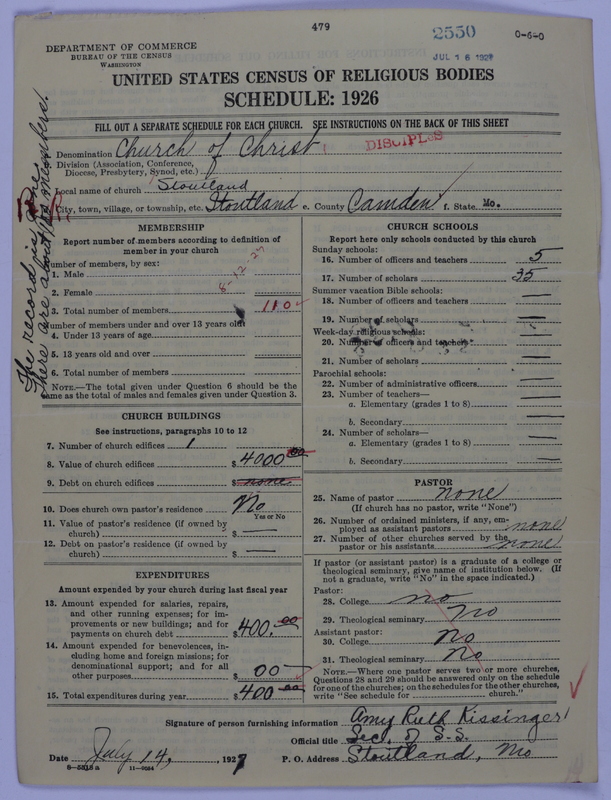 479
2550
0-6-0
DEPARTMENT OF COMMERCE
BUREAU OF THE CENSUS
WASHINGTON
JUL 16 1927
UNITED STATES CENSUS OF RELIGIOUS BODIES
SCHEDULE: 1926
FILL OUT A SEPARATE SCHEDULE FOR EACH CHURCH. SEE INSTRUCTIONS ON THE BACK OF THIS SHEET
The record is gone.
There are about 110 members.
Denomination Church of Christ
DISCIPLES
Division (Association, Conference,
Diocese, Presbytery, Synod, etc.)
Local name of church Stoutland
City, town, village, or township, etc. Stoutland e. County Camden f. State Mo.
MEMBERSHIP
Report number of members according to definition of
member in your church
Number of members, by sex:
1. Male
2. Female
8-12-27
3. Total number of members 110
Number of members under and over 13 years old:
4. Under 13 years of age
5. 13 years old and over
6. Total number of members
NOTE.—The total given under Question 6 should be the
same as the total of males and females given under Question 3.
CHURCH BUILDINGS
See instructions, paragraphs 10 to 12
7. Number of church edifices 1
8. Value of church edifices $4000.00
9. Debt on church edifices $ none
10. Does church own pastor's residence No
Yes or No
11. Value of pastor's residence (if owned by
church) $ —
12. Debt on pastor's residence (if owned by
church) $ —
EXPENDITURES
Amount expended by your church during last fiscal year
13. Amount expended for salaries, repairs,
and other running expenses; for im-
provements or new buildings; and for
payments on church debt $400.00
14. Amount expended for benevolences, in-
cluding home and foreign missions; for
denominational support; and for all
other purposes $ 00
15. Total expenditures during year $400.00
CHURCH SCHOOLS
Report here only schools conducted by this church
Sunday schools:
16. Number of officers and teachers 5
17. Number of scholars 35
Summer vacation Bible schools:
18. Number of officers and teachers —
19. Number of scholars —
Week-day religious schools:
20. Number of officers and teachers —
21. Number of scholars —
Parochial schools:
22. Number of administrative officers —
23. Number of teachers—
a. Elementary (grades 1 to 8) —
b. Secondary —
24. Number of scholars—
a. Elementary (grades 1 to 8) —
b. Secondary —
PASTOR
25. Name of pastor none
(If church has no pastor, write "None")
26. Number of ordained ministers, if any, em-
ployed as assistant pastors none
27. Number of other churches served by the
pastor or his assistants none
If pastor (or assistant pastor) is a graduate of a college or
theological seminary, give name of institution below. (If
not a graduate, write "No" in the space indicated.)
Pastor:
28. College no
29. Theological seminary no
Assistant pastor:
30. College No
31. Theological seminary No
NOTE.—Where one pastor serves two or more churches,
Questions 28 and 29 should be answered only on the schedule
for one of the churches; on the schedules for the other churches,
write "See schedule for church."
Signature of person furnishing information Amy Ruth Kissinger
Official title Sec. of S.S.
Date July 14, 1927 P. O. Address Stoutland, Mo
8-5513 a 11-9064